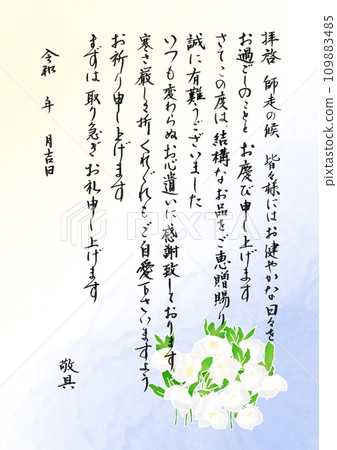 拝啓 師走の候 皆々様にはお健やかな日々を
お過ごしのことと お慶び申し上げます
さてこの度は、結構なお品をご恵贈賜り
誠に有難うございました
いつも変わらぬお心遣いに感謝致しております
寒さ厳しき折 くれぐれもご自愛下さいますよう
お祈り申し上げます
まずは 取り急ぎ お礼申し上げます
敬具
令和 年 月吉日
PIXTA
109883485